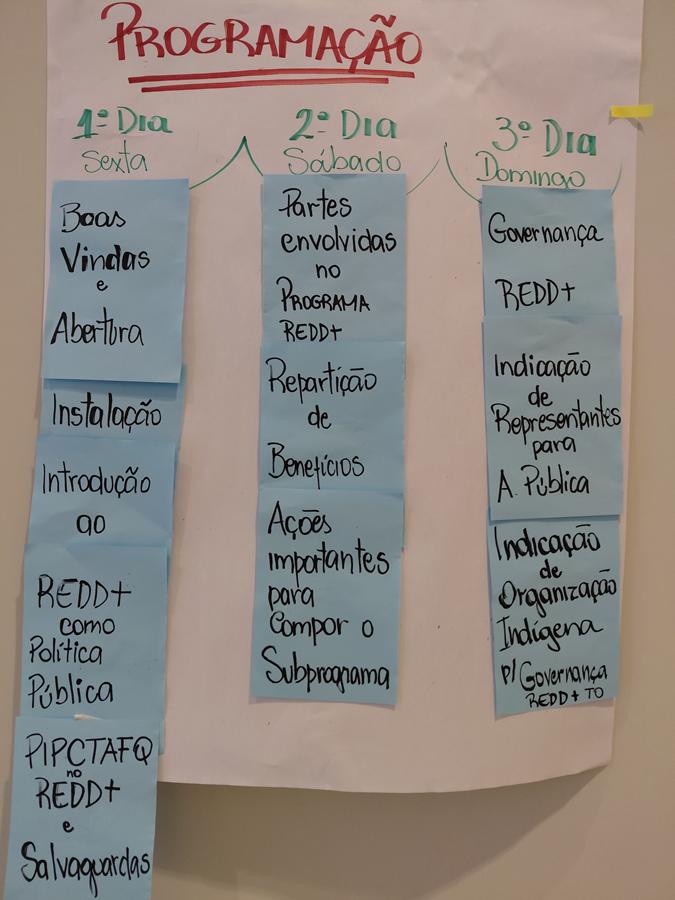 PROGRAMAÇÃO
1º Dia
Sexta
Boas
Vindas
e
Abertura
Instalação
Introdução
ao
REDD+
como
Política
Pública
PIPCTAFQ
no
REDD+
e
Salvaguardas
2º Dia
Sábado
Partes
envolvidas
no
PROGRAMA
REDD+
Repartição
de
Benefícios
Ações
importantes
para
Compor o
Subprograma
3º Dia
Domingo
Governança
REDD+
Indicação
de
Representantes
para
A. Pública
Indicação
de
Organização
Indígena
p/ Governança
REDD+ TO